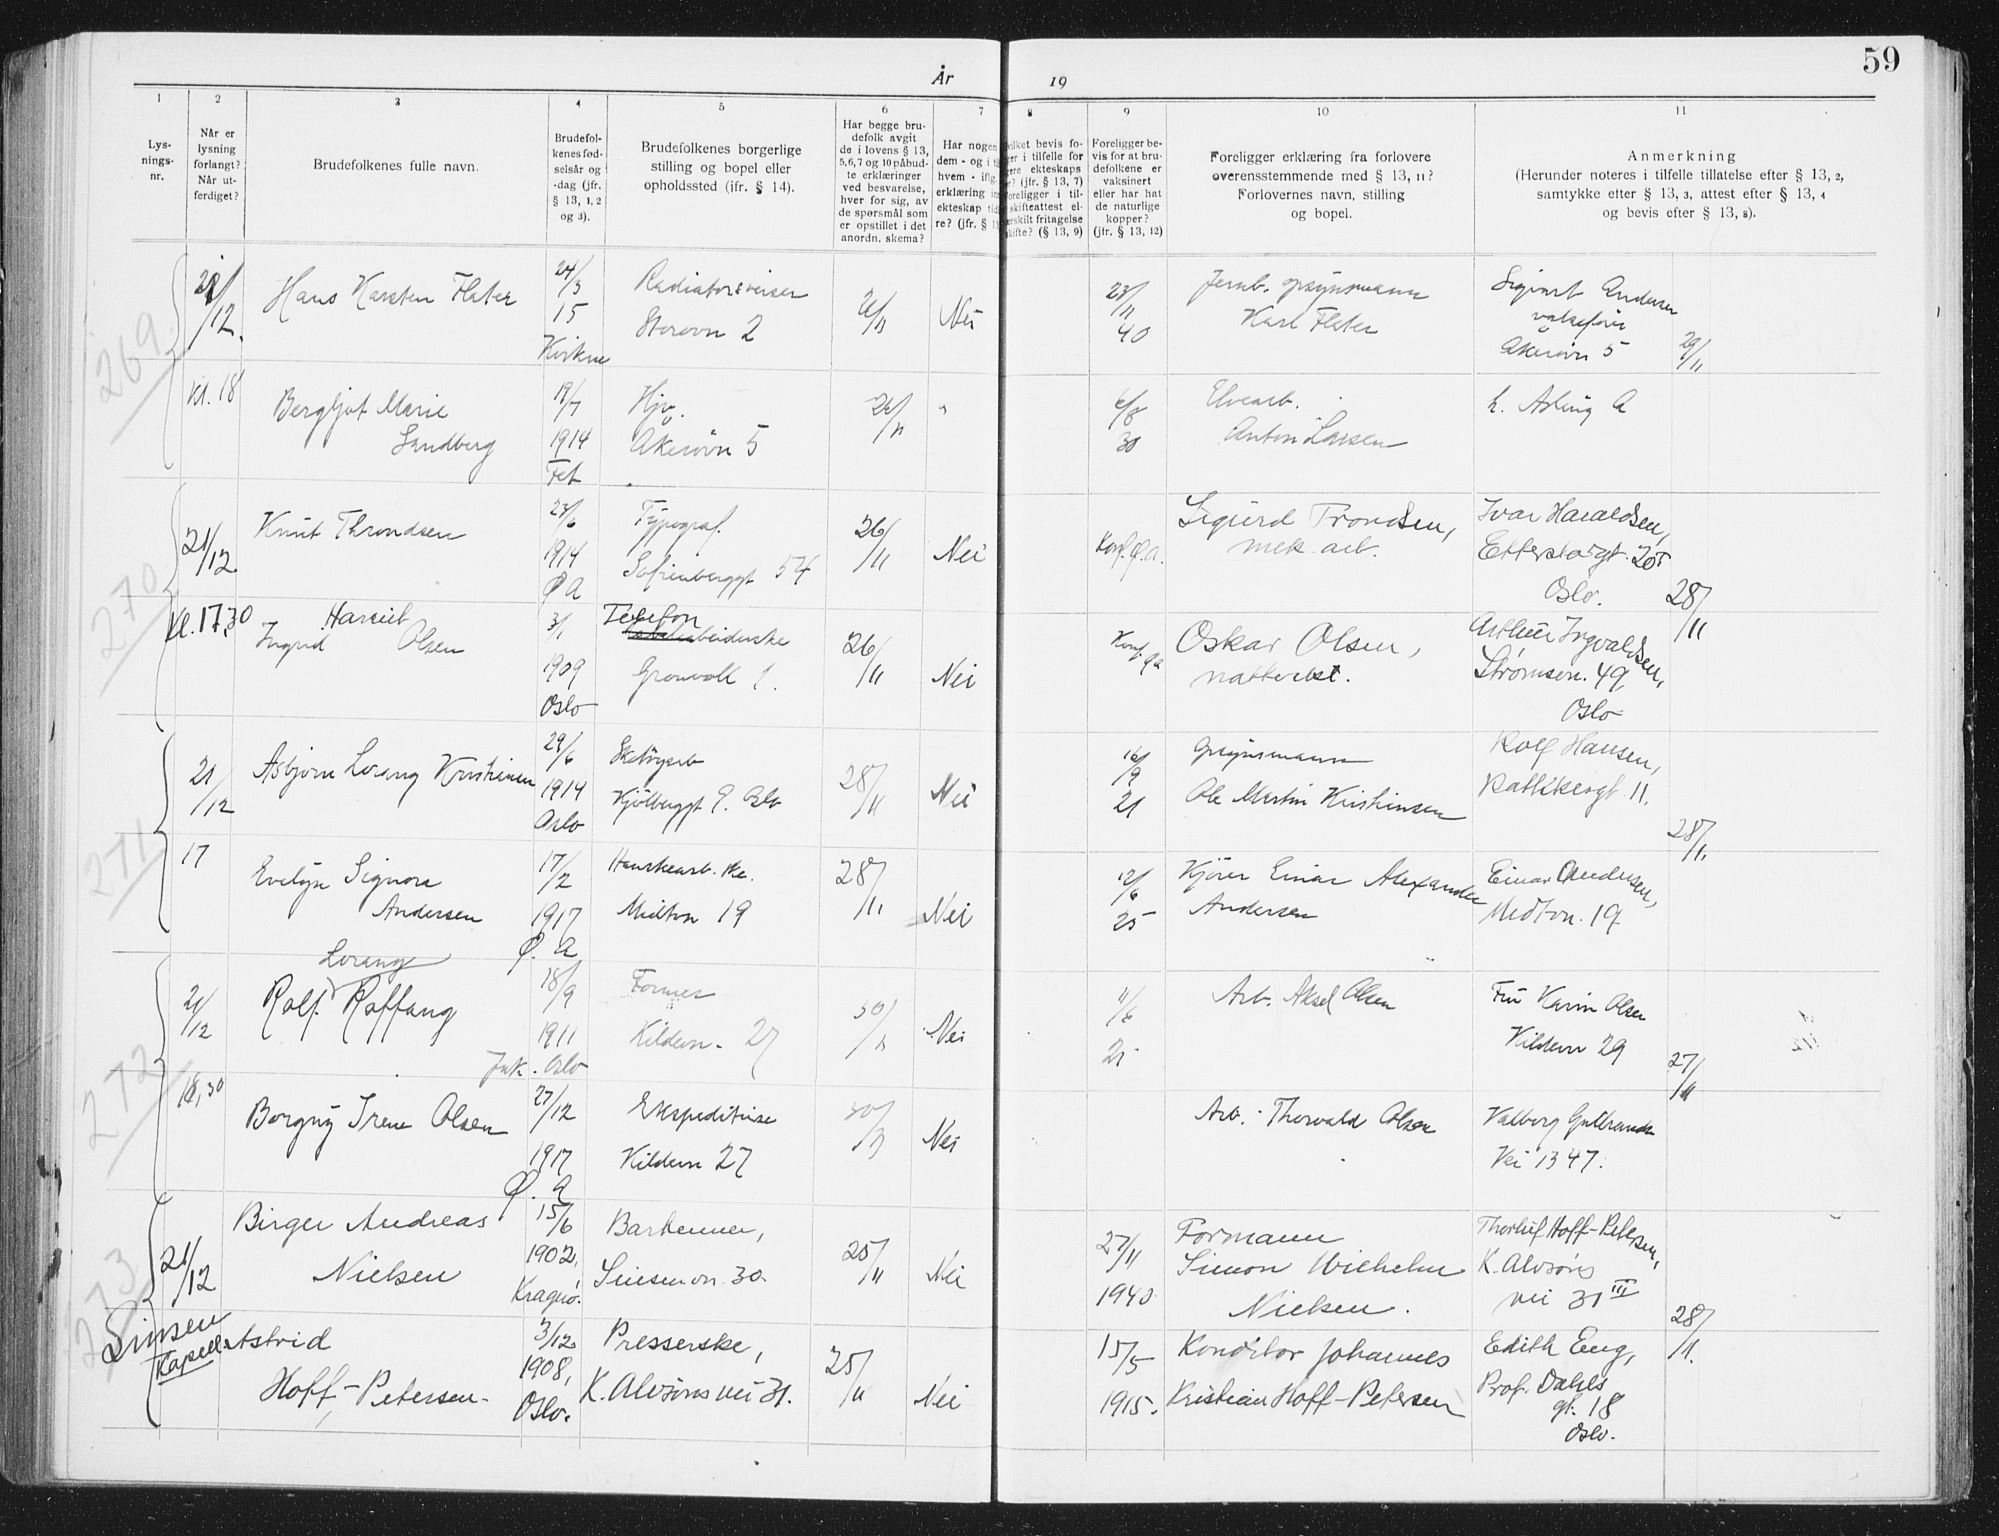 År 19
59
1 2 3 4 5 6 7 8 9 10 11
Lys-
nings-
nr.
Når er
lysning
forlangt?
Når ut-
ferdiget?
Brudefolkenes fulle navn.
Brudefol-
kenes fød-
selsår og
-dag (jfr.
§ 13, 1, 2
og 3).
Brudefolkenes borgerlige
stilling og bopel eller
opholdssted (ifr. § 14).
Har begge bru-
defolk avgit
de i lovens § 13,
5,6,7 og 10 påbud-
te erklæringer
ved besvarelse,
hver for sig, av
de spørsmål som
er opstillet i det
anordn. skema?
Har nogen
dem - og i
hvem - iflg.
erklæring in
ekteskap tid
re? (jfr. §
vilket bevis fo-
ger i tilfelle for
ere ekteskaps
r? (jfr. § 13, 7)
oreligger i til-
skifteattest el-
ærskilt fritagelse
skifte? (§ 13, 9)
Foreligger be-
vis for at bru-
defolkene er
vaksinert
eller har hat
de naturlige
kopper?
(jfr. § 13, 12)
Foreligger erklæring fra forlovere
overensstemmende med § 13, 11?
Forlovernes navn, stilling
og bopel.
Anmerkning
(Herunder noteres i tilfelle tillatelse efter § 13, 2,
samtykke etter § 13, 3, attest efter § 13, 4
og bevis efter § 13, 8).
269
21/12.
Hans Karsten Flater
24/3
15
Kvikne
Storovn 2
Nei
23/11
40
Jernb. opsynsmann
Karl Flater
Sigvart Andersen
Akersvn 5
29/11
Kl. 18
Bergljot Marie
Sandberg
19/7
1914
Fet
Hjv.
Akersvn 5
26/11
"
6/8
30
Elvearb.
Anton Larsen
270
21/12
Knut Throndsen
23/6
1914
Ø A
Typograf.
Sofienberggt 54
26/11
Nei
Konf. Ø.A.
Sigurd Trondsen,
mek. arb.
Ivar Haraldsen,
Etterstadgt. 20
Oslo.
28/11
Kl. 17.30
Harriet
Ingrid Olsen
3/1
1909
Oslo
Telefon
arbeiderske
Gronvoll 1.
26/11
Nei
Konf. ØA
Oskar Olsen,
nattevakt.
Arthur Ingvaldsen,
Strømsvn. 49,
Oslo
271
21/12
Asbjørn Lorang Kristiansen
29/6
1914
Oslo
Skotøyarb
Kjølberggt 9. Oslo
28/11
Nei
16/9
21
Opsynsmann
Ole Martin Kristiansen
Rolf Hansen,
Rattkesgt 11.
28/11
17
Evelyn Signora
Andersen
17/2
1917
Ø. A
Hanskearb.ske.
Midtvn 19
28/11
Nei
12/6
25
Kjører Einar Alexander
Andersen
Einar Andersen,
Midtvn. 19
272
21/12
Lorang
Rolf Raffang
18/9
1911
Jak. Oslo
Former
Kildevn. 27
30/11
Nei
11/6
21
Arb. Aksel Olsen
Fru Karin Olsen
Kildevn 29
27/11
18,30
Borgny Irene Olsen
27/12
1917
Ø. A
Ekspeditrise
Kildevn 27
30/11
Nei
Arb. Thorvald Olsen
Valborg Gulbrandsen
Vei 1347.
273
21/12
Sinsen
Kapell
Birger Andreas
Nielsen
15/6
1902,
Kragerø.
Bartenner,
Sinsenvn. 30.
25/11
Nei
27/11
1940
Formann
Simon Wilhelm
Nielsen.
Thorleif Hoff-Petersen,
K. Alvsøns
vei 31 III
28/11.
Astrid
Hoff-Petersen.
3/12
1908,
Oslo.
Presserske,
K. Alvsøns vei 31.
25/11
Nei
15/5
1915.
Konditor Johannes
Kristian Hoff-Petersen
Edith Eng,
Prof. Dahls
gt. 18
Oslo.